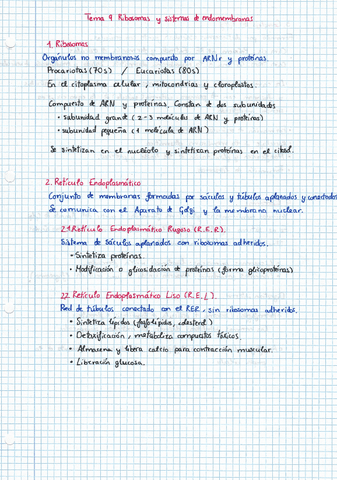 Tema 9 Ribosomas y sistemas de endomembranas
1. Ribosomas
Orgánulos no membranosos compuesto por ARNr y proteínas.
Procariotas (70s) / Eucariotas (80s)
En el citoplasma celular, mitocondrias y cloroplastos.
Compuesto de ARN y proteínas. Constan de dos subunidades
• subunidad grande (2-3 moléculas de ARN y proteínas)
• subunidad pequeña (1 molécula de ARN)
Se sintetizan en el nucléolo y sintetizan proteínas en el citosol.
2. Retículo Endoplasmático
Conjunto de membranas formadas por sáculos y túbulos aplanados y conectados
Se comunica con el Aparato de Golgi y la membrana nuclear.
2.1 Retículo Endoplasmático Rugoso (R.E.R).
Sistema de sáculos aplanados con ribosomas adheridos.
• Sintetiza proteínas.
• Modificación o glicosidación de proteínas (forma glicoproteínas)
2.2. Retículo Endoplasmático Liso (R.E.L).
Red de túbulos conectado con el RER, sin ribosomas adheridos.
• Sintetiza lípidos (fosfolípidos, colesterol)
• Detoxificación, metaboliza compuestos tóxicos.
• Almacena y libera calcio para contracción muscular.
• Liberación glucosa.